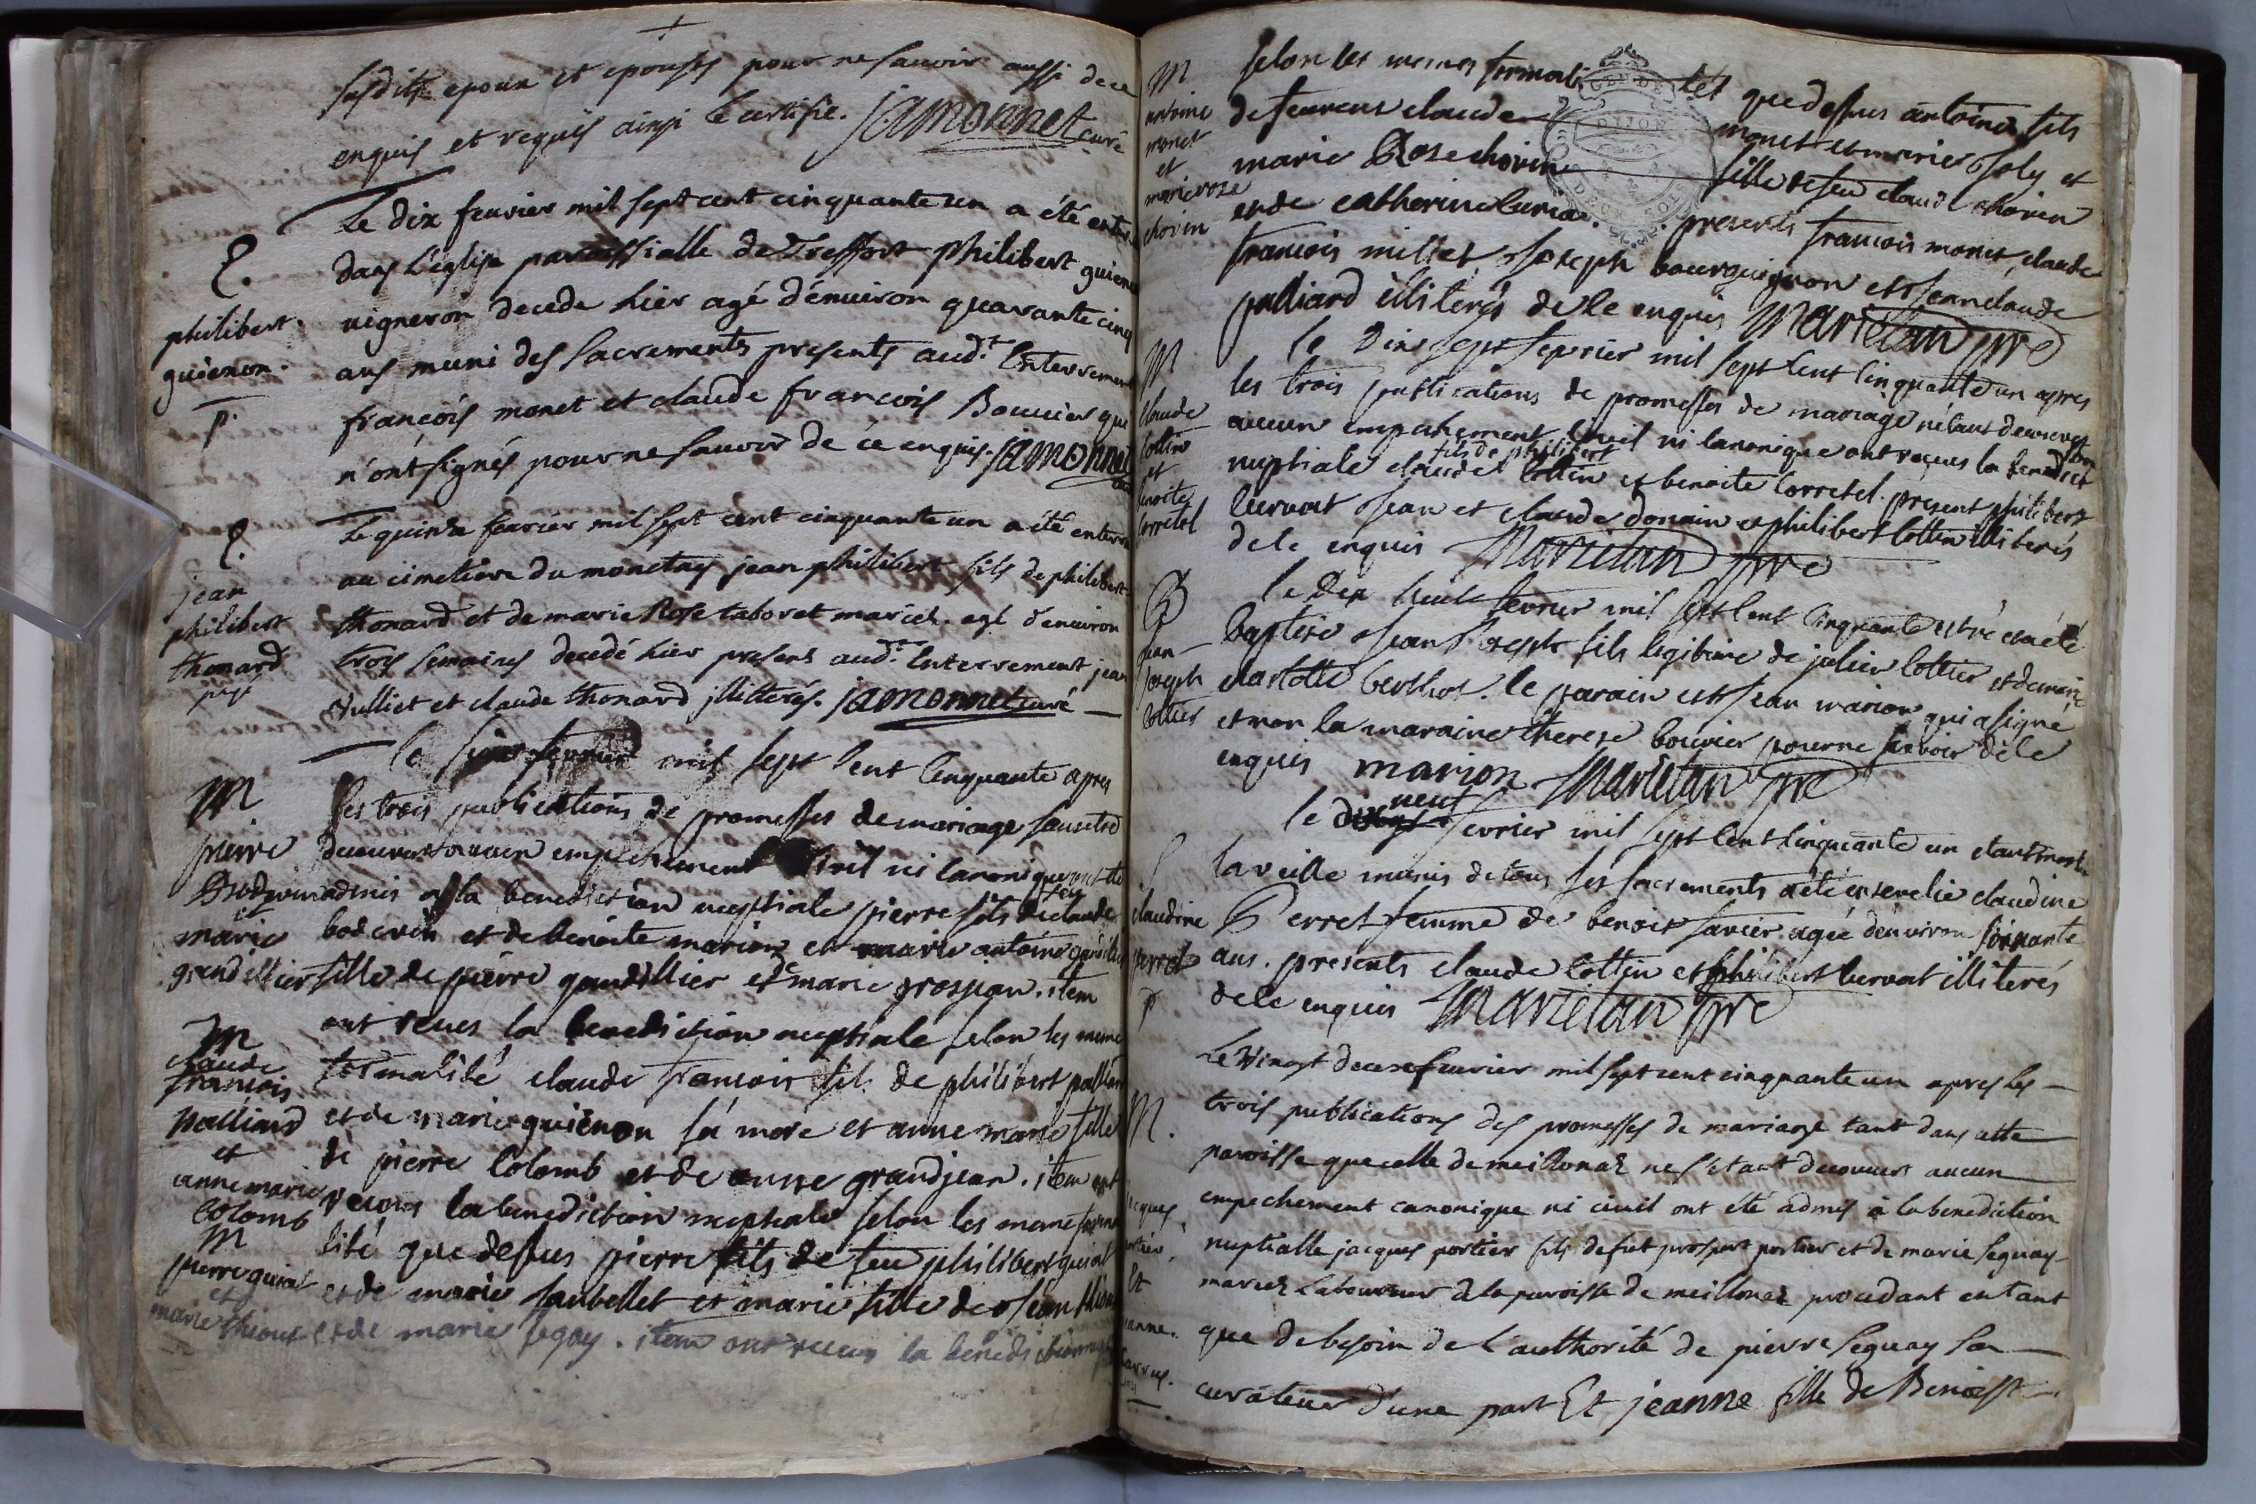 susdits epoux et epouses pour ne sauoir aussi de ce
enquis et requis ainsi le certifie. jamonnet curé
E.
philibert
guienon.
p.
Le dix feurier mil sept cent cinquante un a été enter
dans L'eglise paroissialle de Treffort philibert guienon
uigneron decede hier agé d'enuiron quarante cinq
ans muni des sacrements presents aud.t Enterrement
françois monet et claude francois Bouuier que
n'ont signés pour ne sauoir de ce enquis. jamonnet
E.
jean
philibert
thonard
Le quinze feurier mil sept cent cinquante un a été enterré
au cimetiere du monetay jean philibert fils de philibert
thonard et de marie Rose taboret mariés. agé d'enuiron
trois semaines decedé hier presents aud.t Enterrement jean
vulliet et claude thonard illiterés. jamonnet curé
M
pierre
et
marie
grandillier
le feurier mil sept cent cinquante apres
les trois publications de promesses de mariage sans etre
decouuert aucun empechement civil ni canonique ont été
admis a la benediction nuptiale pierre fils de feu claude
bodevin et de benoite marion et marie antoine
fille de pierre gandillier et marie grosjean. item
ont reçus la benediction nuptiale selon les meme
M
claude
francois
palliard
et
anne marie
colomb
formalité claude francois fils de philibert palliard
et de marie guienon sa mere et anne marie fille
de pierre colomb et de anne grandjean. item ont
recus la benediction nuptiale selon les meme forma
M
pierre guirat
et
marie
lité que dessus pierre fils de feu philibert guirat
et de marie saubellet et marie fille de jean
et de marie segay. item ont recus la benediction
M
antoine
monet
et
marie rose
chovin
selon les memes formalités que dessus antoine fils
de feu claude monet et marie joly et
marie Rose chovin fille de feu claude chovin
et de catherine presents francois monet, claude
francois millet joseph bourguignon et jean claude
palliard illiterés de ce enquis Marietan ptre
M
claude
cottin
et
benoite
corretel
le dix sept fevrier mil sept cent cinquante un apres
les trois publications de promesses de mariage n'étant decouvert
aucun empechement civil ni canonique ont reçus la benediction
nuptiale claude fils de philibert cottin et benoite corretel. present philibert
curvat jean et claude donain et philibert cottin illiterés
de ce enquis Marietan ptre
B
jean
joseph
cottier
le dix huit fevrier mil sept cent cinquante et un a été
baptisé jean joseph fils legitime de julien cottier et de marie
charlotte berthot. le parain est jean marion qui a signé
et non la maraine therese bouvier pour ne savoir de ce
enquis marion Marietan ptre
E
claudine
perret
p
le dix neuf fevrier mil sept cent cinquante un etant morte
la veille munis de tous ses sacrements a été ensevelie claudine
Perret femme de benoit savier. agée d'environ soixante
ans. presents claude cottin et philibert curvat illiterés
de ce enquis Marietan ptre
M.
jacques
portier.
Et
jeanne.
Le Vingt deux feurier mil sept cent cinquante un apres les
trois publications des promesses de mariage tant dans cette
paroisse que celle de meillonaz ne s'etant decouuert aucun
empechement canonique ni ciuil ont été admis à la benediction
nuptialle jacques portier fils de fut prospert portier et de marie seguay
mariez Laboureur de la paroisse de meillonaz procedant en tant
que de besoin de l'authorité de pierre seguay son
curateur d'une part Et jeanne fille de Benoist